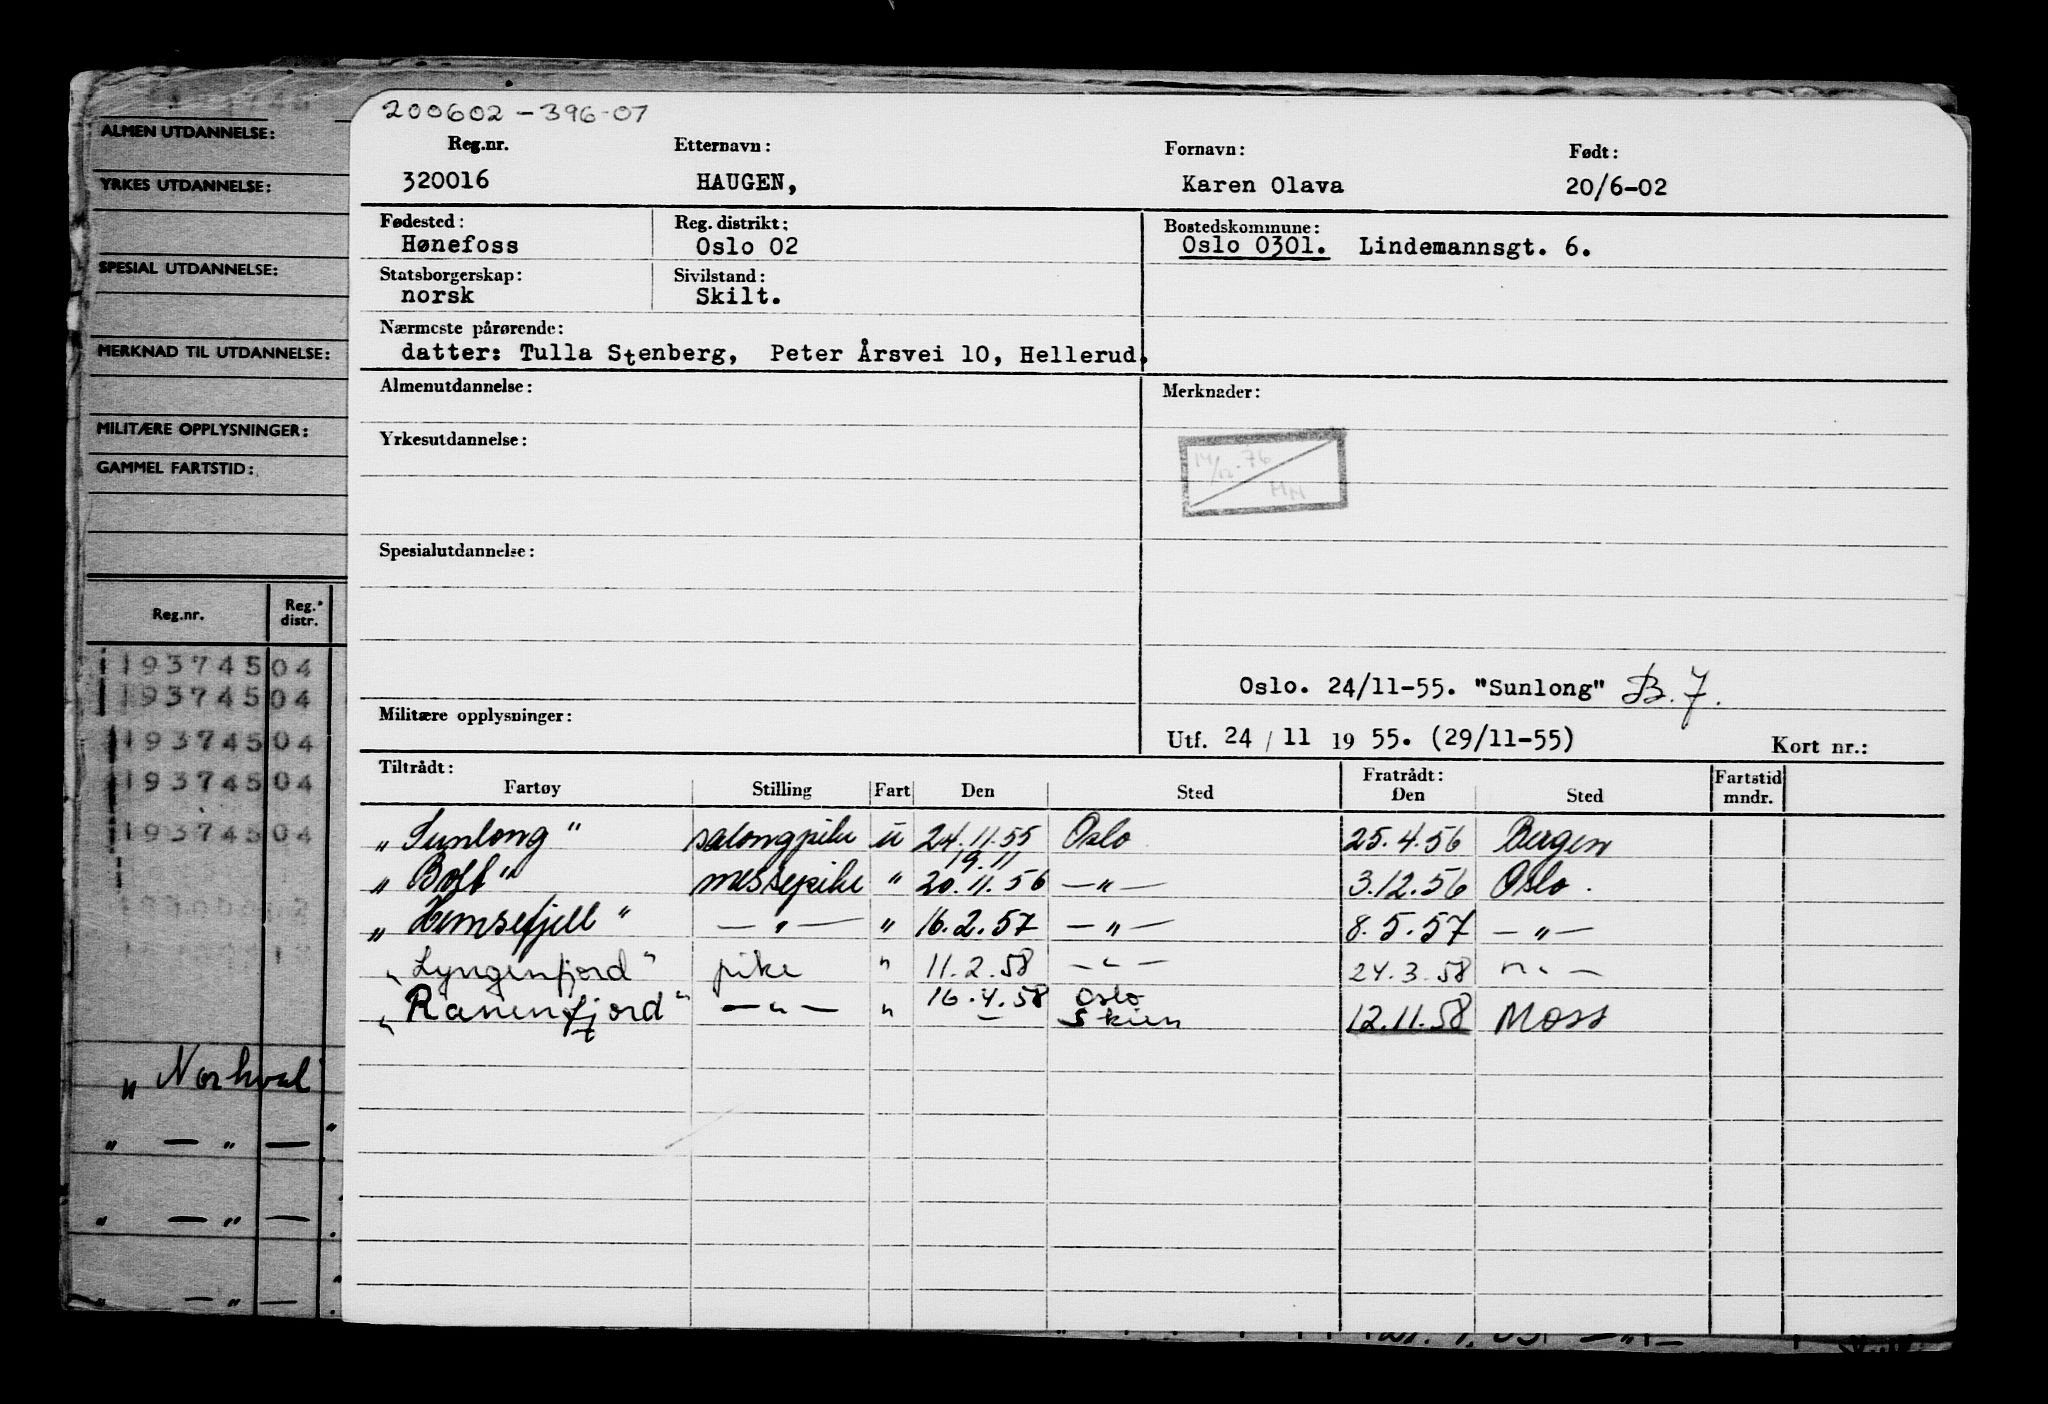 200602-396-07
Reg.nr. Etternavn: Fornavn: Født:
320016 HAUGEN, Karen Olava 20/6-02
Fødested: Reg. distrikt: Bostedskommune:
Hønefoss Oslo 02 Oslo 0301. Lindemannsgt. 6.
Statsborgerskap: Sivilstand:
norsk Skilt.
Nærmeste pårørende:
datter: Tulla Stenberg, Peter Årsvei 10, Hellerud.
Almenutdannelse: Merknader:
Yrkesutdannelse:
14/12-76
HH
Spesialutdannelse:
Oslo. 24/11-55. "Sunlong" B.7.
Militære opplysninger:
Utf. 24 / 11 19 55. (29/11-55) Kort nr.:
Tiltrådt: Fratrådt: Fartstid
Fartøy Stilling Fart Den Sted Den Sted mndr.
„Sunlong" salongpike u 24.11.55 Oslo 25.4.56 Bergen
19.11
„ " messepike " 20.11.56 —„— 3.12.56 Oslo.
„Hemsefjell" —„— " 16.2.57 —„— 8.5.57 —„—
„Lyngenfjord" pike " 11.2.58 —„— 24.3.58 —„—
„Ranenfjord" —„— " 16.4.58 Oslo
Skien 12.11.58 Moss
ALMEN UTDANNELSE:
YRKES UTDANNELSE:
SPESIAL UTDANNELSE:
MERKNAD TIL UTDANNELSE:
MILITÆRE OPPLYSNINGER:
GAMMEL FARTSTID:
Reg.nr. Reg. distr.
19374504
19374504
19374504
19374504
19374504
„Norhval
„ — „ —
„ — „ —
„ — „ —